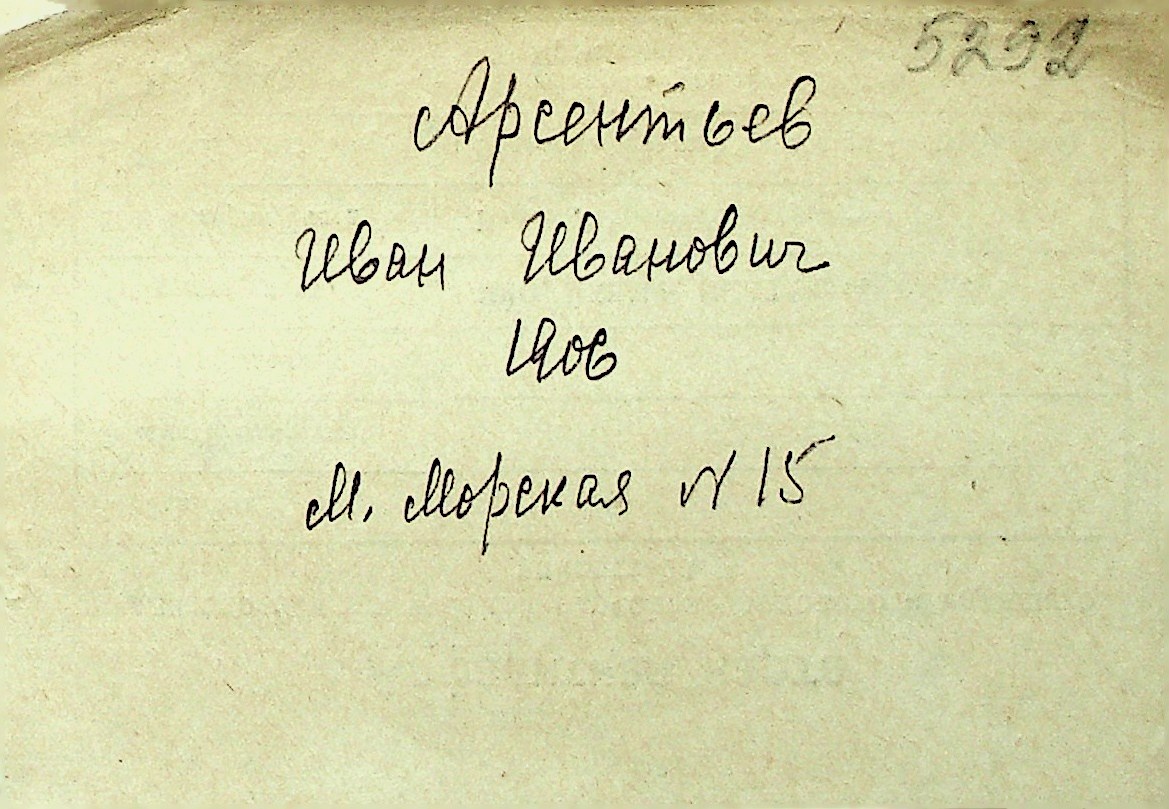 5292
Арсентьев
Иван Иванович
М. Морская N 15